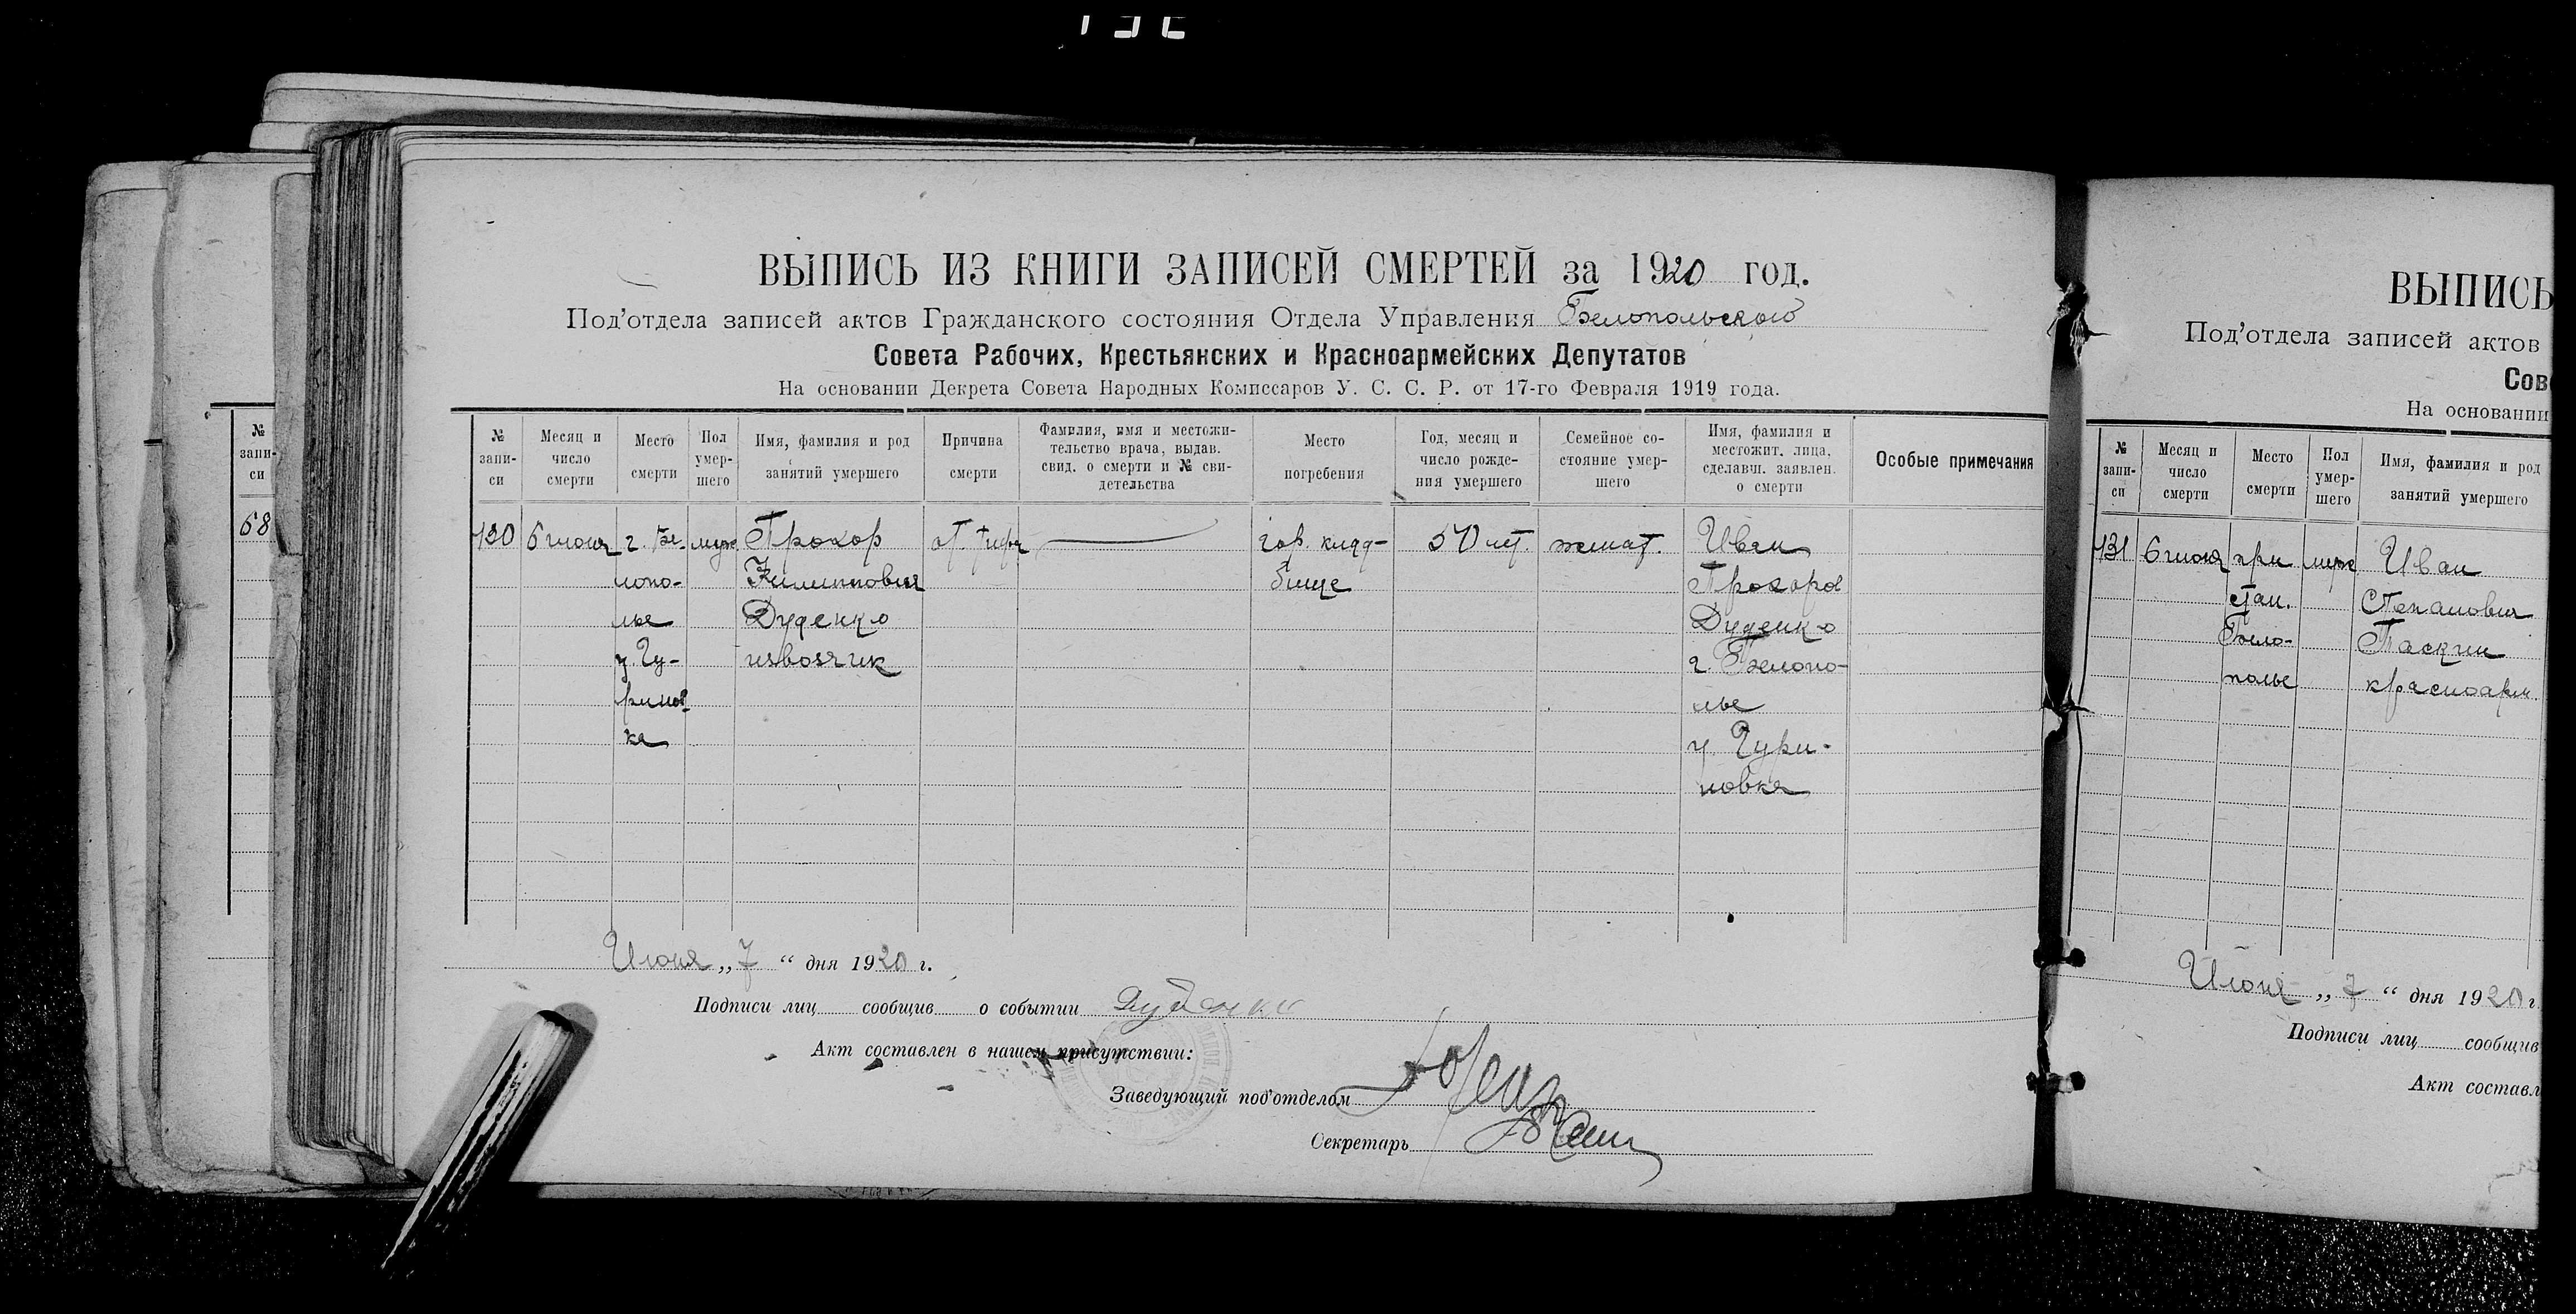 № запи-
си
68
ВЫПИСЬ ИЗ КНИГИ ЗАПИСЕЙ СМЕРТЕЙ за 1920 год.
Под'отдела записей актов Гражданского состояния Отдела Управления Белопольского
Совета Рабочих, Крестьянских и Красноармейских Депутатов
На основании Декрета Совета Народных Комиссаров У. С. С. Р. от 17-го Февраля 1919 года.
№
запи-
си
Месяц и
число
смерти
Место
смерти
Пол
умер-
шего
Имя, фамилия и род
занятий умершего
Причина
смерти
Фамилия, имя и местожи-
тельство врача, выдав.
свид. о смерти и № сви-
детельства
Место
погребения
Год, месяц и
число рожде-
ния умершего
Семейное со-
стояние умер-
шего
Имя, фамилия и
местожит. лица,
сделавш. заявлен.
о смерти
Особые примечания
130
6 июня
г. Бе-
лопо-
лье
у. Чу-
ринов-
ка
муж
Прохор
Филиппович
Дуденко
извозчик
от тифа
гор. клад-
бище
50 лет.
женат.
Иван
Прохоров
Дуденко
г. Белопо-
лье
у. Чури-
новка
Июня „7“ дня 1920 г.
Подписи лиц сообщив о событии Дуденко
Акт составлен в нашем присутствии:
Заведующий под'отделом
Секретарь
ВЫПИСЬ
Под'отдела записей актов
Сов
На основании
№
запи-
си
Месяц и
число
смерти
Место
смерти
Пол
умер-
шего
Имя, фамилия и род
занятий умершего
131
6 июня
при
стан.
Бело-
полье
муж
Иван
Степанович
Паскин
красноарм.
Июня „7“ дня 1920 г.
Подписи лиц сообщив
Акт составл